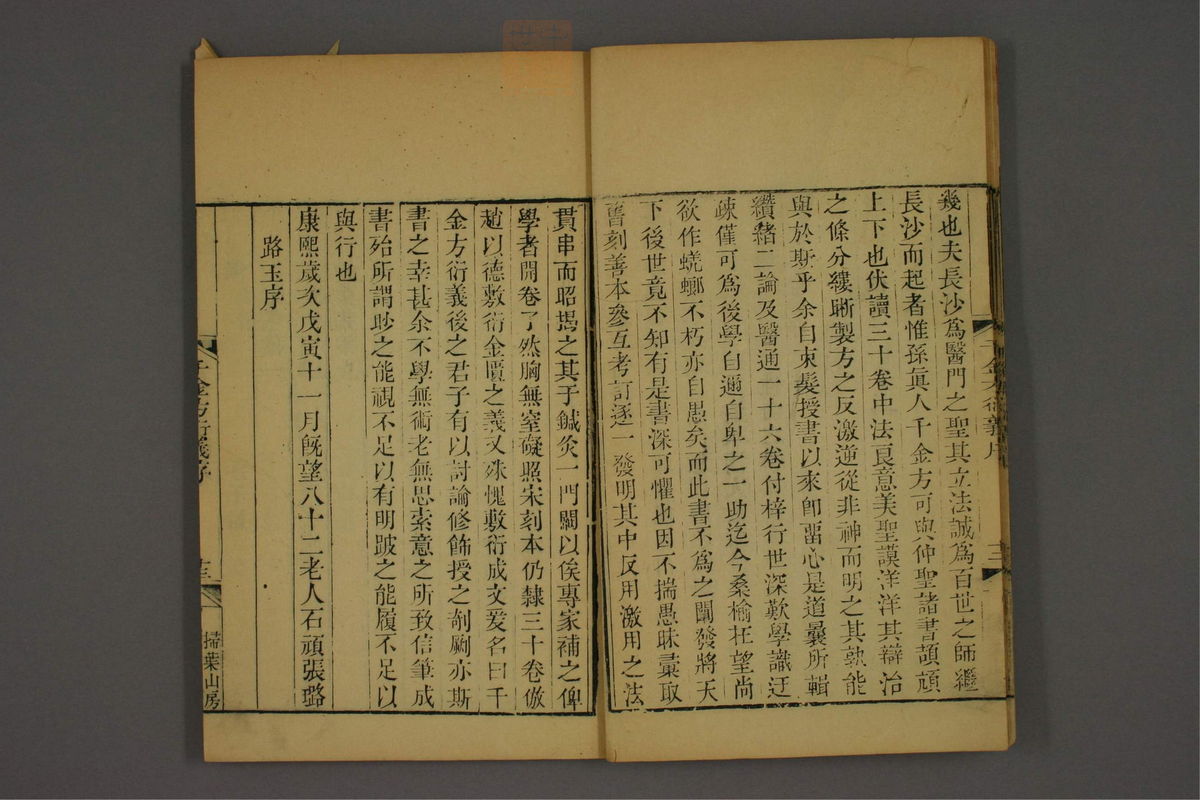 幾也夫長沙為醫門之聖其立法誠為百世之師繼
長沙而起者惟孫眞人千金方可與仲聖諸書頡頏
上下也伏讀三十卷中法良意美聖謨洋洋其辯治
之條分縷晰製方之反激逆從非神而明之其孰能
與於斯乎余自束髮授書以來卽畱心是道曩所輯
纘緒二論及醫通一十六卷付梓行世深歎學識迂
疎僅可為後學自邇自卑之一助迄今桑榆在望尚
欲作蜣螂不朽亦自愚矣而此書不為之闡發將天
下後世竟不知有是書深可懼也因不揣愚昧彙取
舊刻善本參互考訂逐一發明其中反用激用之法
貫串而昭揭之其于鍼灸一門闕以俟專家補之俾
學者開卷了然胸無窒礙照宋刻本仍隸三十卷倣
趙以德敷衍金匱之義又殊愧敷衍成文爰名曰千
金方衍義後之君子有以討論修飾授之剞劂亦斯
書之幸甚余不學無術老無思索意之所致信筆成
書殆所謂眇之能視不足以有明跛之能履不足以
與行也
康熙歲次戊寅十一月旣望八十二老人石頑張璐
路玉序
千金方衍義序
掃葉山房